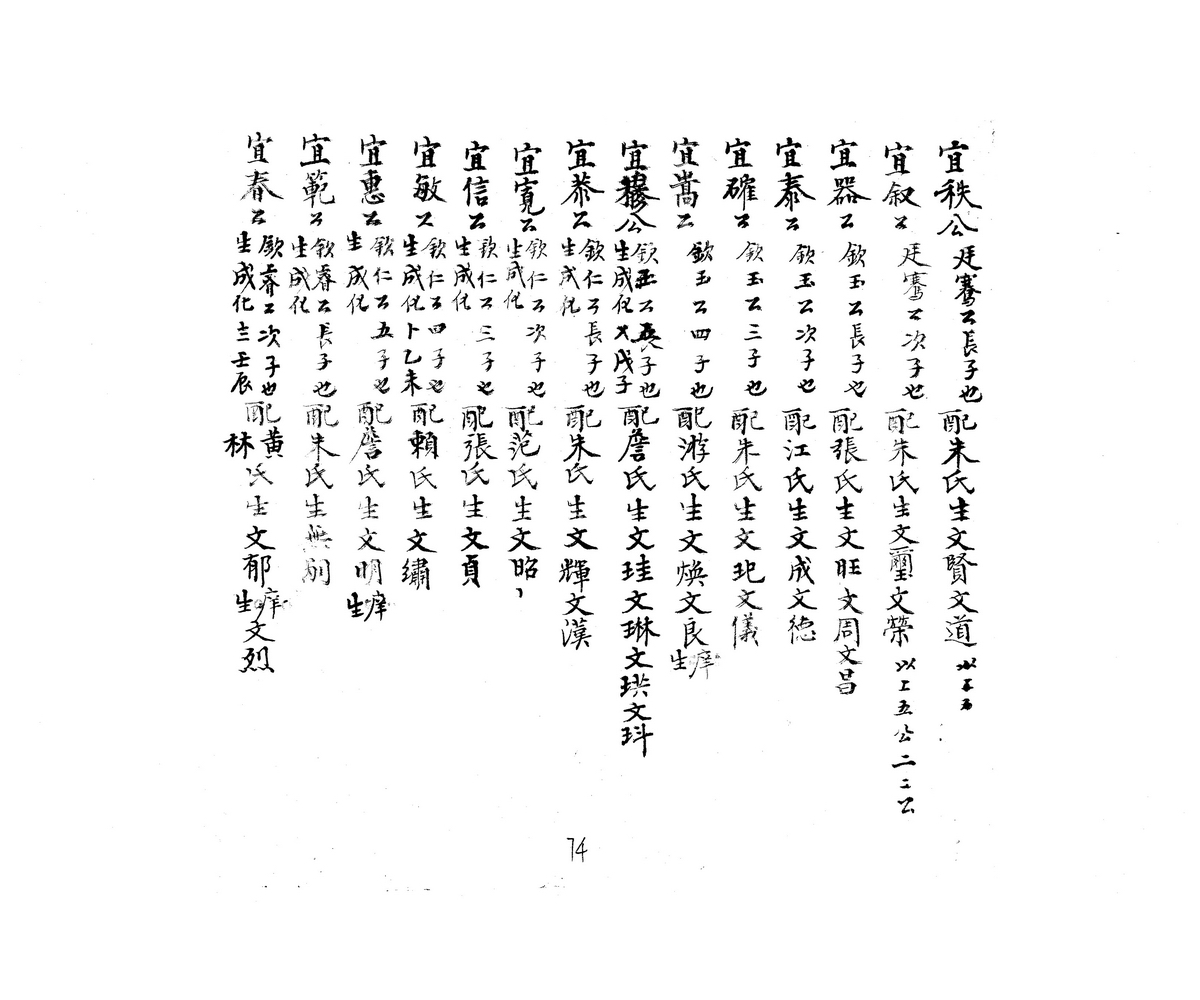 宜秩公 廷騫公長子也 配朱氏生文賢文道 以上五
宜叙公 廷騫公次子也 配朱氏生文璽文榮 以上五公二二公
宜器公 欽玉公長子也 配張氏生文旺文周文昌
宜泰公 欽玉公次子也 配江氏生文成文德
宜確公 欽玉公三子也 配朱氏生文玘文儀
宜嵩公 欽玉公四子也 配游氏生文煥文良庠生
宜穆公 欽玉公五子也 生成化戊子 配詹氏生文珪文琳文珙文玶
宜恭公 欽仁公長子也 生成化 配朱氏生文輝文漢
宜寬公 欽仁公次子也 生成化 配范氏生文昭
宜信公 欽仁公三子也 生成化 配張氏生文貞
宜敏公 欽仁公四子也 生成化卜乙未 配賴氏生文繡
宜惠公 欽仁公五子也 生成化 配詹氏生文明庠生
宜範公 欽睿公長子也 生成化 配朱氏生無嗣
宜春公 欽睿公次子也 生成化壬辰 配黃林氏生文郁庠生文烈
74